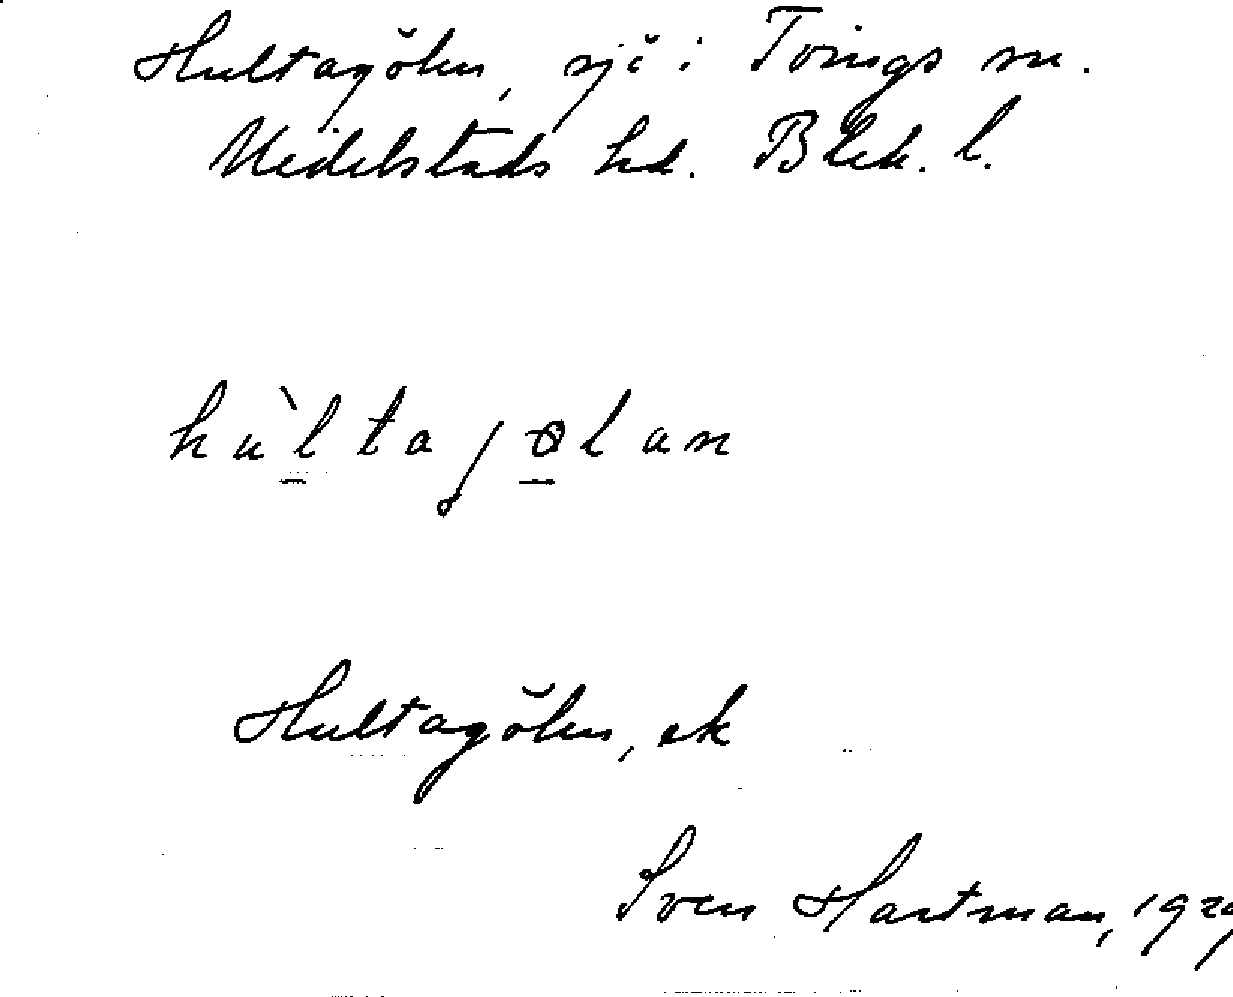 Hultagölen, sjö i Tvings sn.
Medelstads hd. Blek. l.
hùltajølan
Hultagölen, ek
Sven Hartman, 1929